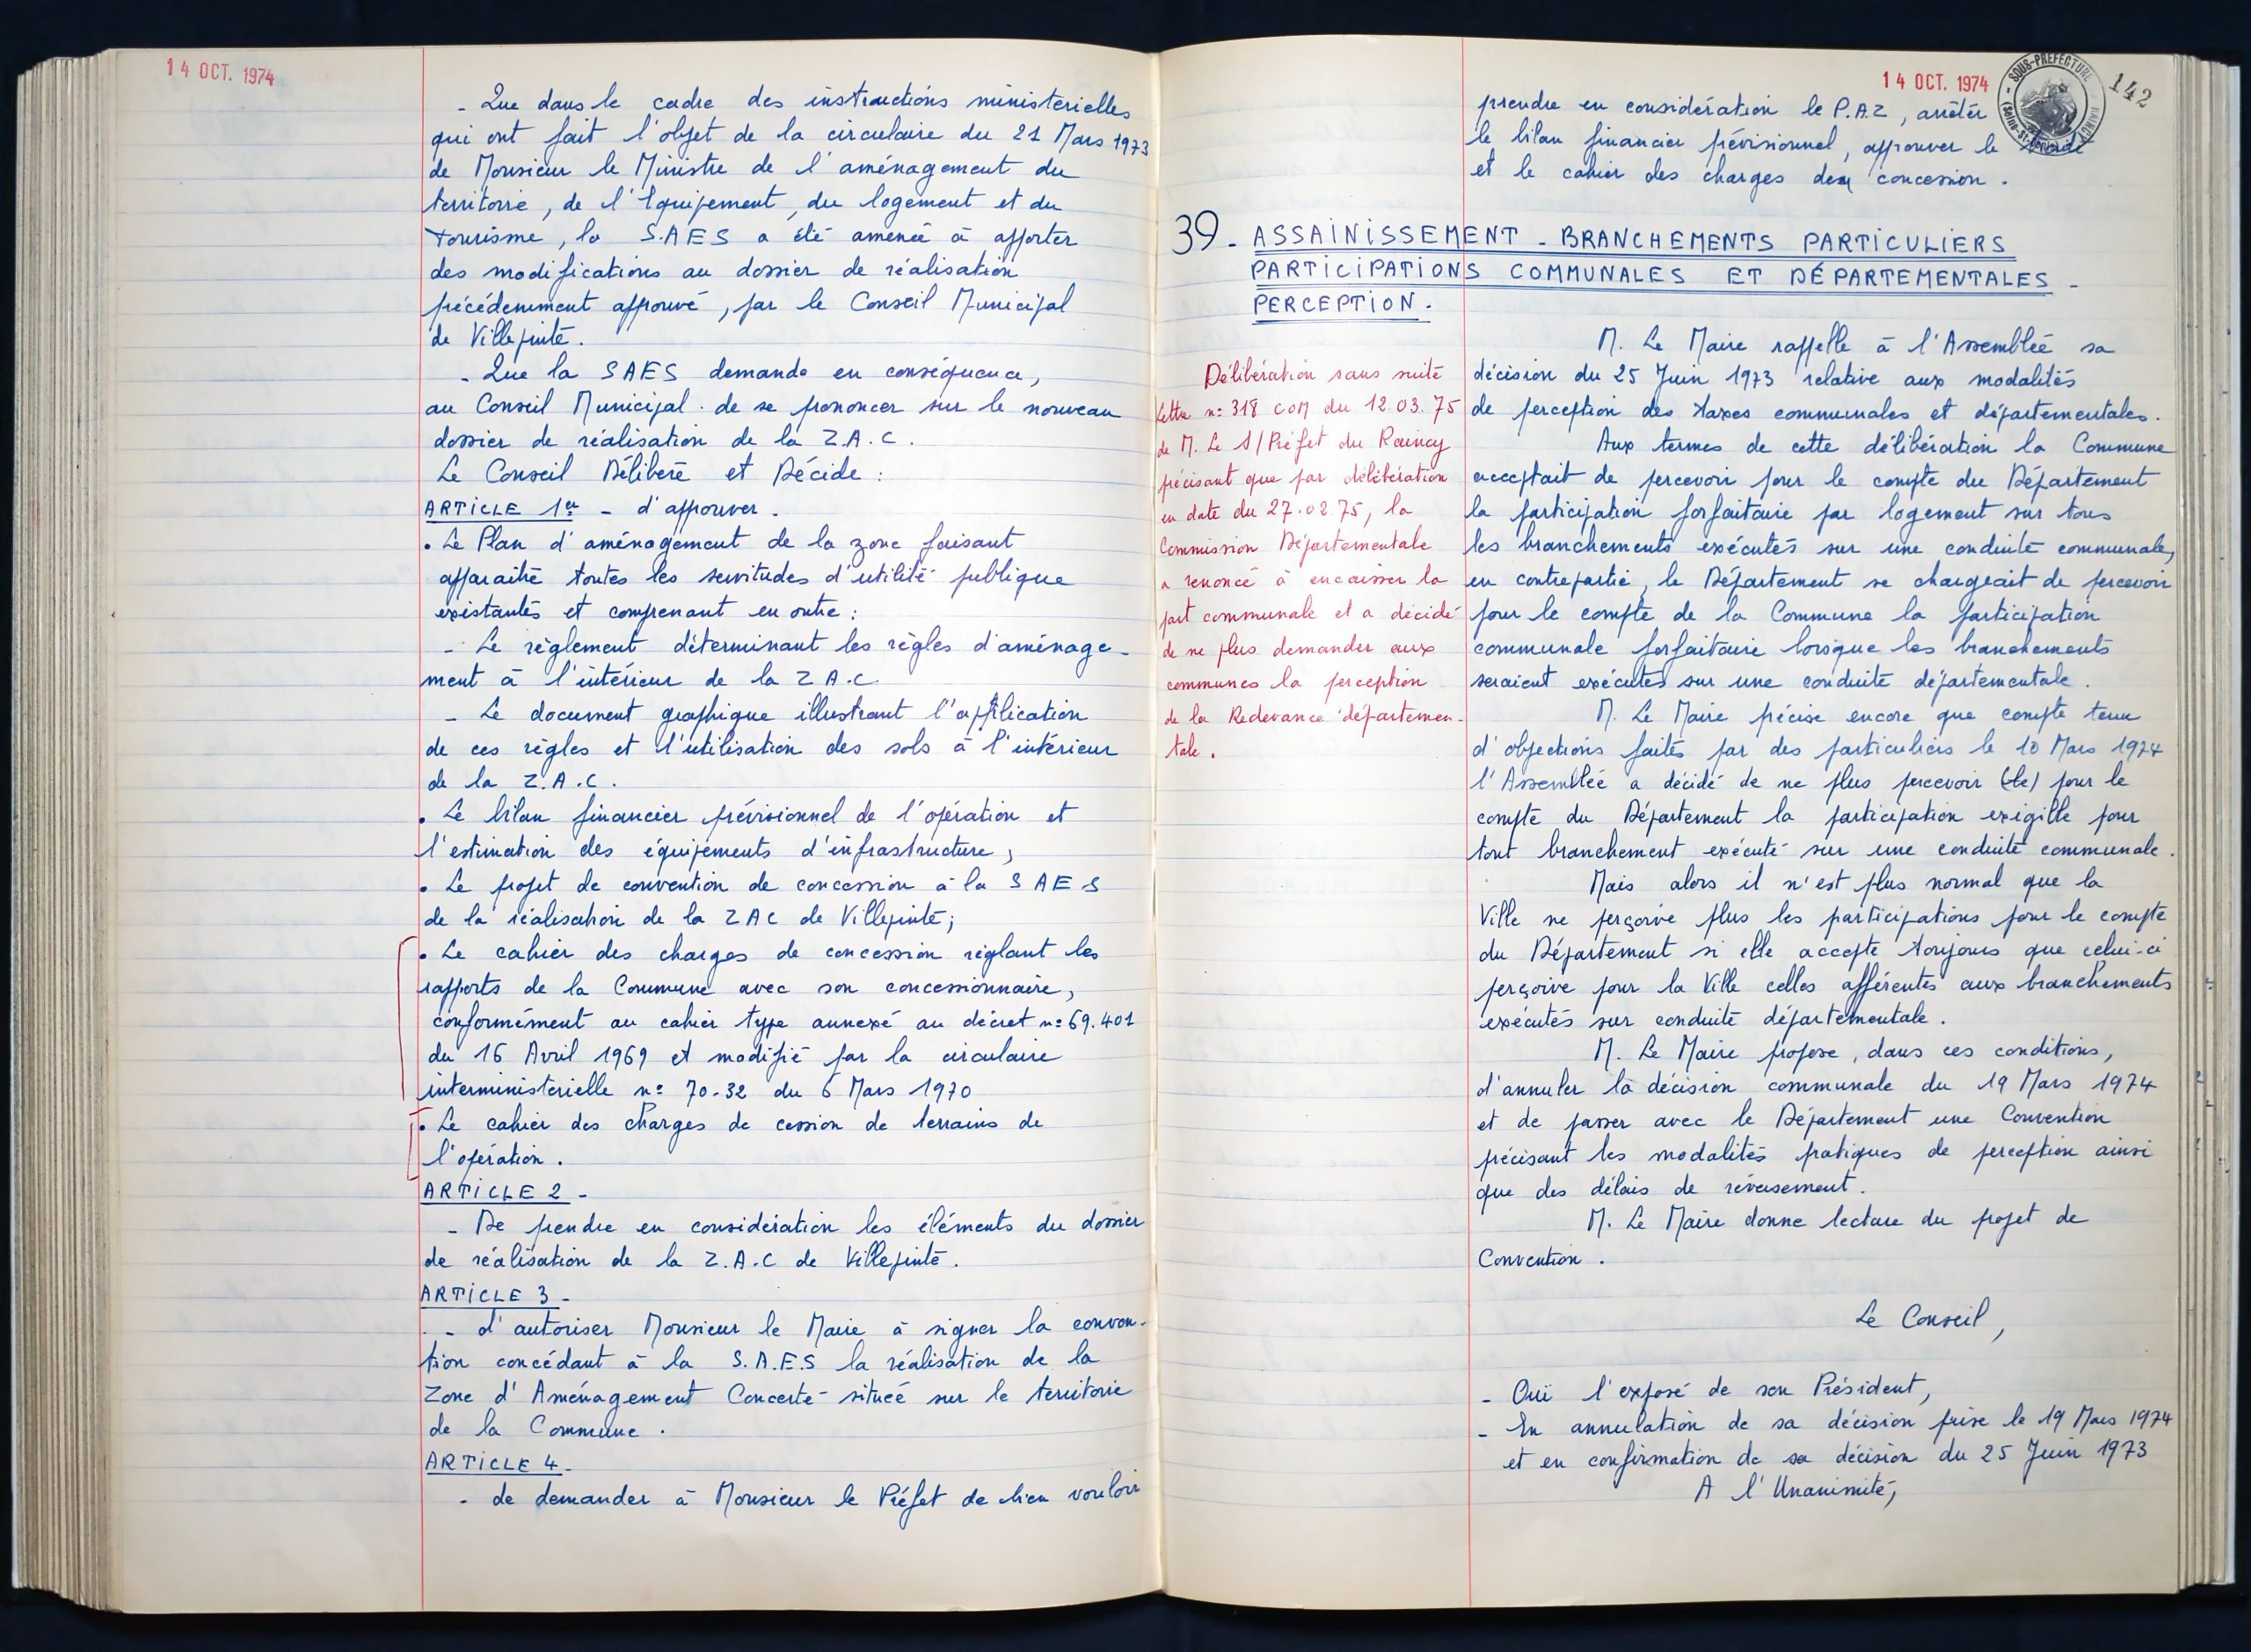 14 OCT. 1974
- Que dans le cadre des instructions ministérielles
qui ont fait l'objet de la circulaire du 21 Mars 1973
de Monsieur le Ministre de l'aménagement du
territoire, de l'Equipement, du logement et du
tourisme, la S.AES a été amenée à apporter
des modifications au dossier de réalisation
précédemment approuvé, par le Conseil Municipal
de Villepinte.
- Que la SAES demande en conséquence,
au Conseil Municipal de se prononcer sur le nouveau
dossier de réalisation de la Z.A.C.
Le Conseil Délibère et Décide :
ARTICLE 1er - d'approuver.
• Le Plan d'aménagement de la zone faisant
apparaître toutes les servitudes d'utilité publique
existantes et comprenant en outre :
- Le règlement déterminant les règles d'aménage-
ment à l'intérieur de la Z A.C.
- Le document graphique illustrant l'application
de ces règles et l'utilisation des sols à l'intérieur
de la Z.A.C.
• Le bilan financier prévisionnel de l'opération et
l'estimation des équipements d'infrastructure,
• Le projet de convention de concession à la SAES
de la réalisation de la ZAC de Villepinte;
• Le cahier des charges de concession réglant les
rapports de la Commune avec son concessionnaire,
conformément au cahier type annexé au décret n° 69.401
du 16 Avril 1969 et modifié par la circulaire
interministérielle n° 70-32 du 6 Mars 1970
• Le cahier des charges de cession de terrains de
l'opération.
ARTICLE 2 -
- De prendre en considération les éléments du dossier
de réalisation de la Z.A.C de Villepinte.
ARTICLE 3 -
- d'autoriser Monsieur le Maire à signer la conven-
tion concédant à la S.A.E.S la réalisation de la
Zone d'Aménagement Concerté située sur le territoire
de la Commune.
ARTICLE 4 -
- de demander à Monsieur le Préfet de bien vouloir
14 OCT. 1974
SOUS-PREFECTURE
142
prendre en considération le P.A.Z, arrêter
le bilan financier prévisionnel, approuver le
et le cahier des charges de concession.
39 - ASSAINISSEMENT - BRANCHEMENTS PARTICULIERS
PARTICIPATIONS COMMUNALES ET DÉPARTEMENTALES -
PERCEPTION.
Délibération sans suite
Lettre n° 318 COM du 12.03.75
de M. Le S/Préfet du Raincy
précisant que par délibération
en date du 27.02 75, la
Commission Départementale
a renoncé à encaisser la
part communale et a décidé
de ne plus demander aux
communes la perception
de la Redevance départemen-
tale.
M. Le Maire rappelle à l'Assemblée sa
décision du 25 Juin 1973 relative aux modalités
de perception des taxes communales et départementales.
Aux termes de cette délibération la Commune
acceptait de percevoir pour le compte du Département
la participation forfaitaire par logement sur tous
les branchements exécutés sur une conduite communale,
en contrepartie, le Département se chargeait de percevoir
pour le compte de la Commune la participation
communale forfaitaire lorsque les branchements
seraient exécutés sur une conduite départementale.
M. Le Maire précise encore que compte tenu
d'objections faites par des particuliers le 10 Mars 1974
l'Assemblée a décidé de ne plus percevoir (le) pour le
compte du Département la participation exigible pour
tout branchement exécuté sur une conduite communale.
Mais alors il n'est plus normal que la
Ville ne perçoive plus les participations pour le compte
du Département si elle accepte toujours que celui-ci
perçoive pour la Ville celles afférentes aux branchements
exécutés sur conduite départementale.
M. Le Maire propose, dans ces conditions,
d'annuler la décision communale du 19 Mars 1974
et de passer avec le Département une Convention
précisant les modalités pratiques de perception ainsi
que des délais de reversement.
M. Le Maire donne lecture du projet de
Convention.
Le Conseil,
- Ouï l'exposé de son Président,
- En annulation de sa décision prise le 19 Mars 1974
et en confirmation de sa décision du 25 Juin 1973
A l'Unanimité,